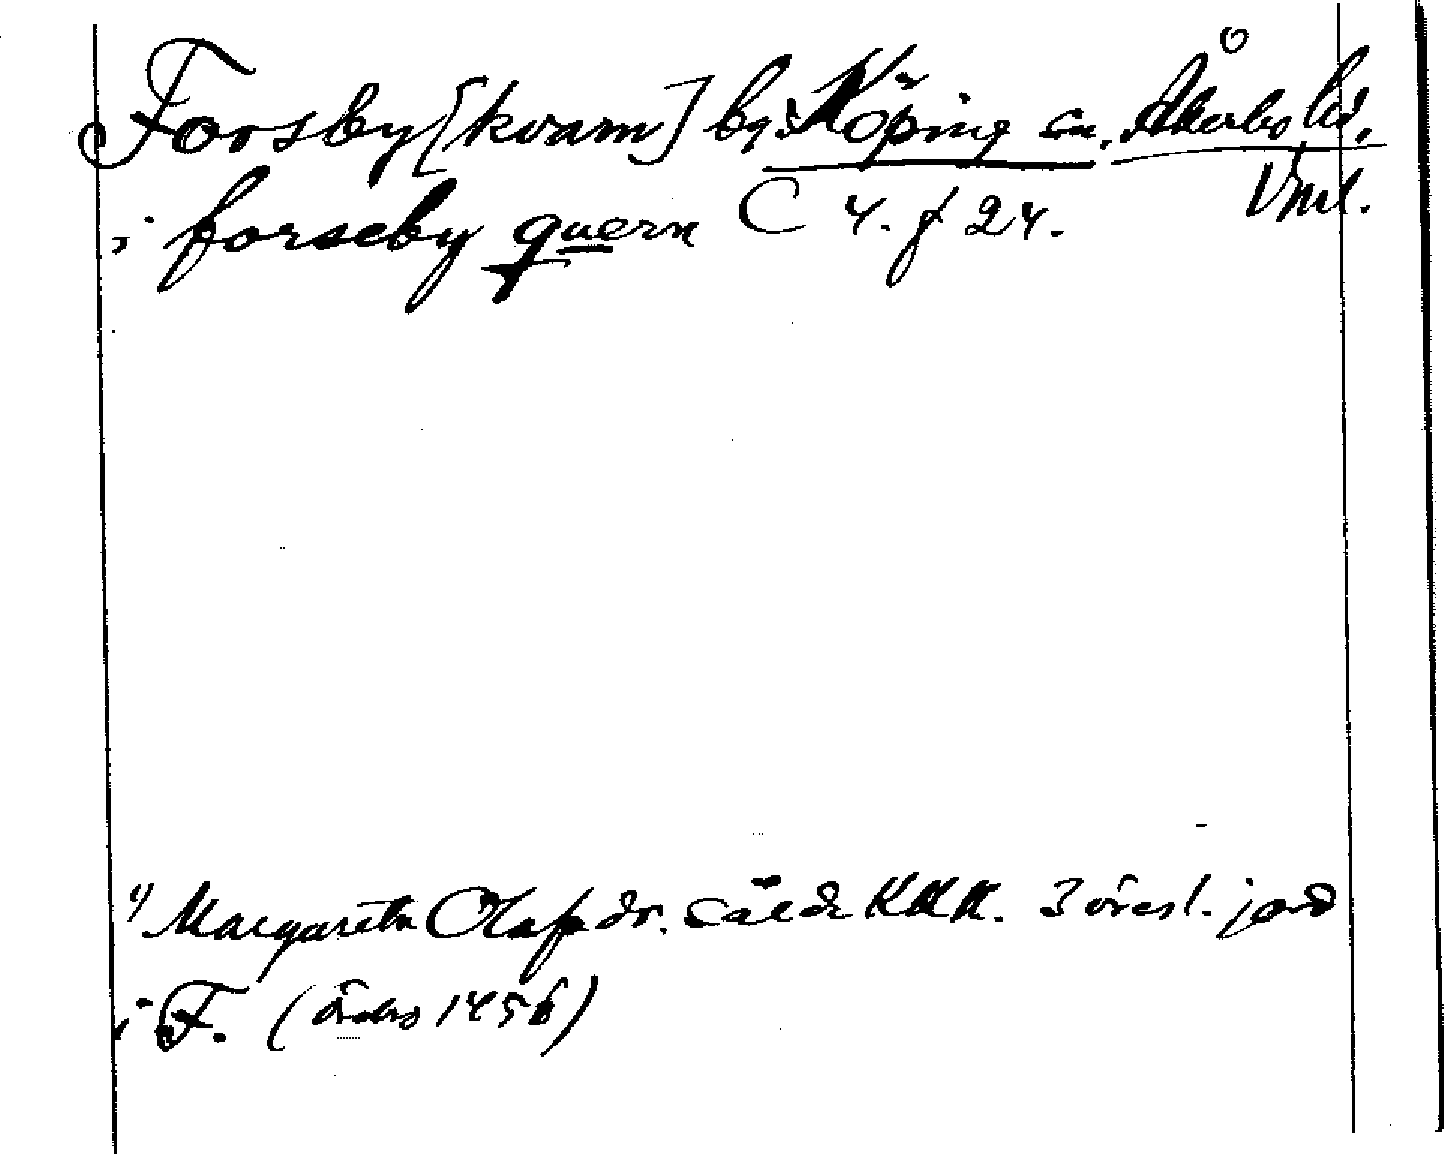 Forsby [kvarn] by. Köping sn. Åkerbo hd. Vml.
i forseby quern C 4. f 24.
1) Margareta Olafsdr. sålde KKK. 3 öresl. jord
i F. (Örebro 1456)